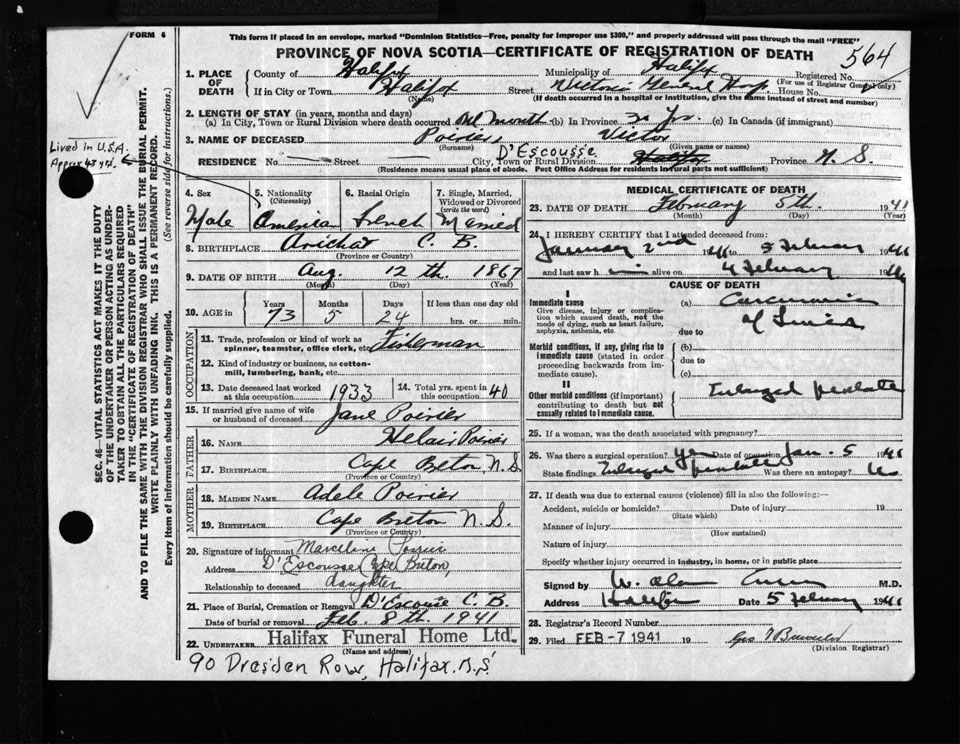 This form if placed in an envelope, marked "Dominion Statistics—Free, penalty for improper use $300," and properly addressed will pass through the mail "FREE"
FORM 6
PROVINCE OF NOVA SCOTIA—CERTIFICATE OF REGISTRATION OF DEATH
564
1. PLACE OF DEATH
County of Halifax
Municipality of Halifax
Registered No.
(For use of Registrar General only)
If in City or Town Halifax
(Name)
Street Victoria General Hosp
House No.
(If death occurred in a hospital or institution, give the name instead of street and number)
2. LENGTH OF STAY (in years, months and days)
(a) In City, Town or Rural Division where death occurred one month (b) In Province 30 yrs. (c) In Canada (if immigrant)
3. NAME OF DECEASED Poirier, Victor
(Surname) (Given name or names)
RESIDENCE No. Street City, Town or Rural Division D'Escousse Halifax Province N. S.
(Residence means usual place of abode. Post Office Address for residents in rural parts not sufficient)
Lived in U.S.A.
Approx 43 yrs.
SEC. 46—VITAL STATISTICS ACT MAKES IT THE DUTY
OF THE UNDERTAKER OR PERSON ACTING AS UNDER-
TAKER TO OBTAIN ALL THE PARTICULARS REQUIRED
IN THE "CERTIFICATE OF REGISTRATION OF DEATH"
AND TO FILE THE SAME WITH THE DIVISION REGISTRAR WHO SHALL ISSUE THE BURIAL PERMIT.
WRITE PLAINLY WITH UNFADING INK. THIS IS A PERMANENT RECORD.
Every item of Information should be carefully supplied. (See reverse side for instructions.)
4. Sex
Male
5. Nationality
(Citizenship)
American
6. Racial Origin
French
7. Single, Married, Widowed or Divorced
(write the word)
Married
8. BIRTHPLACE Arichat C. B.
(Province or Country)
9. DATE OF BIRTH Aug. 12 th. 1867
(Month) (Day) (Year)
10. AGE in
Years Months Days If less than one day old
73 5 24 hrs. or min.
OCCUPATION
11. Trade, profession or kind of work as
spinner, teamster, office clerk, etc. Fisherman
12. Kind of industry or business, as cotton-
mill, lumbering, bank, etc.
13. Date deceased last worked
at this occupation 1933
14. Total yrs. spent in
this occupation 40
15. If married give name of wife
or husband of deceased Jane Poirier
FATHER
16. NAME Helair Poirier
17. BIRTHPLACE Cape Breton, N.S.
(Province or Country)
MOTHER
18. MAIDEN NAME Adele Poirier
19. BIRTHPLACE Cape Breton N. S.
(Province or Country)
20. Signature of informant Marceline Poirier
Address D'Escousse Cape Breton,
Relationship to deceased daughter
21. Place of Burial, Cremation or Removal D'Escousse C. B.
Date of burial or removal Feb. 8th. 1941
22. UNDERTAKER Halifax Funeral Home Ltd.
(Name and address)
90 Dresden Row, Halifax. N.S.
MEDICAL CERTIFICATE OF DEATH
23. DATE OF DEATH February 5th. 1941
(Month) (Day) (Year)
24. I HEREBY CERTIFY that I attended deceased from:
January 2nd 1941 to 5 February 1941
and last saw him alive on 4 February 1941
CAUSE OF DEATH
I
Immediate cause
Give disease, injury or complica-
tion which caused death, not the
mode of dying, such as heart failure,
asphyxia, asthenia, etc
(a) Carcinoma
of
due to
Morbid conditions, if any, giving rise to
immediate cause (stated in order
proceeding backwards from im-
mediate cause).
(b)
due to
(c)
II
Other morbid conditions (if important)
contributing to death but not
causally related to immediate cause.
Enlarged prostate
25. If a woman, was the death associated with pregnancy?
26. Was there a surgical operation? yes Date of operation Jan. 5 1941
State findings Enlarged prostate Was there an autopsy? No
27. If death was due to external causes (violence) fill in also the following:—
Accident, suicide or homicide? Date of injury 19
(State which)
Manner of injury
(How sustained)
Nature of injury
Specify whether injury occurred in industry, in home, or in public place
Signed by W. Alan M.D.
Address Halifax Date 5 February 1941
28. Registrar's Record Number
29. Filed FEB -7 1941 19 Geo
(Division Registrar)